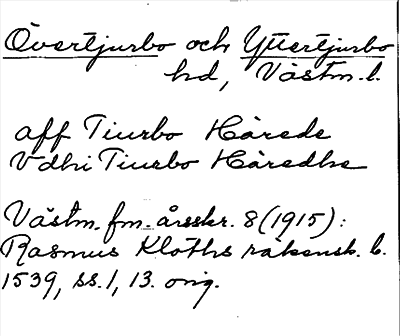 Övertjurbo och Yttertjurbo
hd, Västm. l.
aff Tiurbo Hårede
Vdhi Tiurbo Håredhe
Västm. fm. årsskr. 8 (1915):
Rasmus Kloths räkensk. b.
1539, ss. 1, 13. orig.